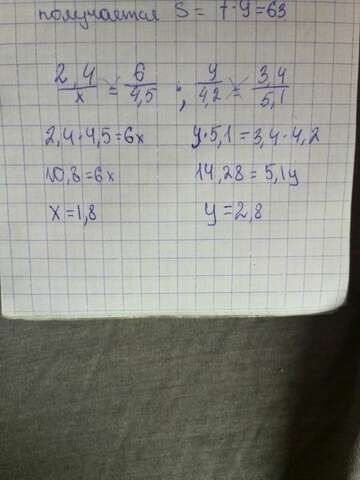 получается S = 7·9=63
2,4/x = 6/4,5 ; y/4,2 = 3,4/5,1
2,4·4,5=6x y·5,1=3,4·4,2
10,8=6x 14,28=5,1y
x=1,8 y=2,8